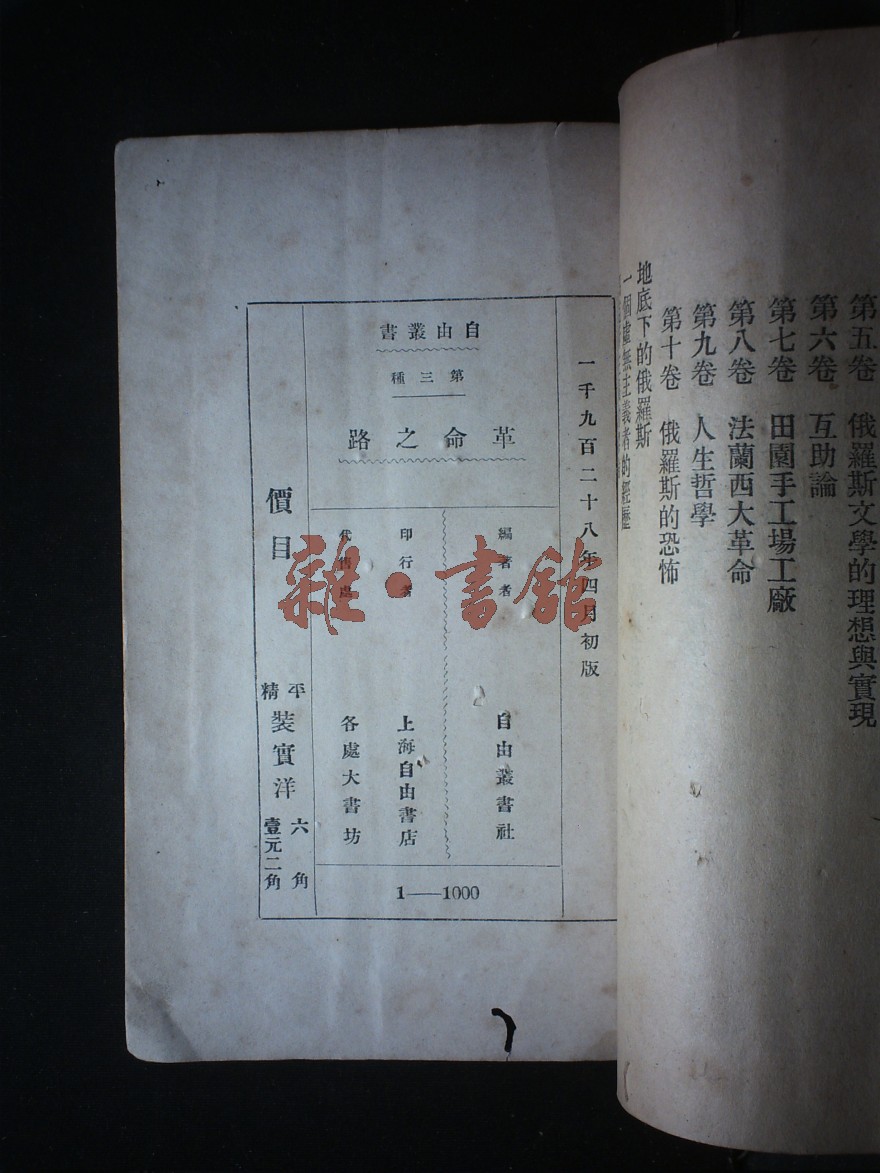 第五卷 俄羅斯文學的理想與實現
第六卷 互助論
第七卷 田園手工場工廠
第八卷 法蘭西大革命
第九卷 人生哲學
第十卷 俄羅斯的恐怖
地底下的俄羅斯
一個虛無主義者的經歷
一千九百二十八年四月初版
自由叢書
第三種
革命之路
編著者 自由叢書社
印行者 上海自由書店
代售處 各處大書坊
1——1000
價目
平裝實洋六角
精裝實洋壹元二角
雜·書館